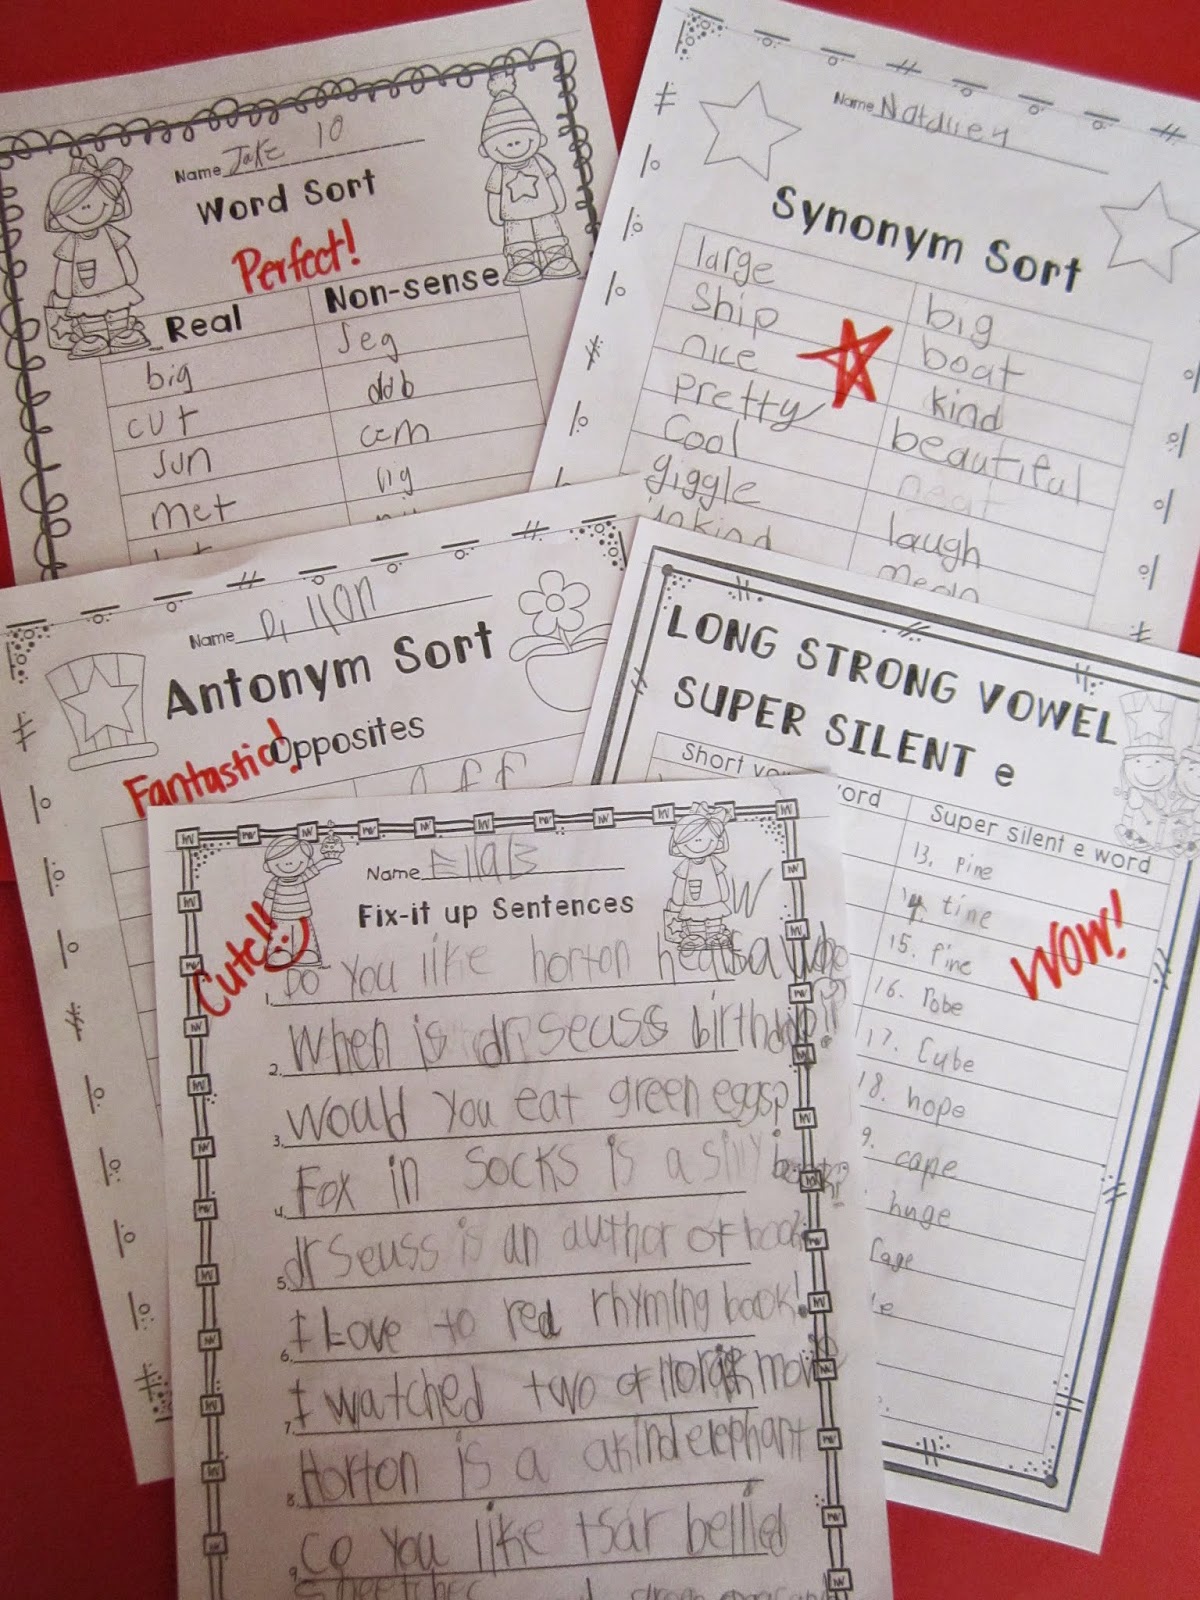 Name Jake 10
Word Sort
Perfect!
Real Non-sense
big seg
cut dab
sun cem
met lig
Name Natalley
Synonym Sort
large big
Ship boat
nice kind
pretty beautiful
Cool neat
giggle laugh
Name Dillon
Antonym Sort
Opposites
Fantastic!
off
LONG STRONG VOWEL
SUPER SILENT e
Short vo ord Super silent e word
13. pine
14 tine
15. fine
16. robe
17. Cube
18. hope
9. cape
huge
Cage
WOW!
Name EllaB
Fix-it up Sentences
Cute!!
1. Do you like horton hears a who
2. When is dr seuss birthday?
3. Would you eat green eggs?
4. Fox in Socks is a silly book
5. dr Seuss is an author of books
6. I Love to red rhyming book!
7. I watched two of horton
8. Horton is a akind elephant
9. co you like tsar bellied